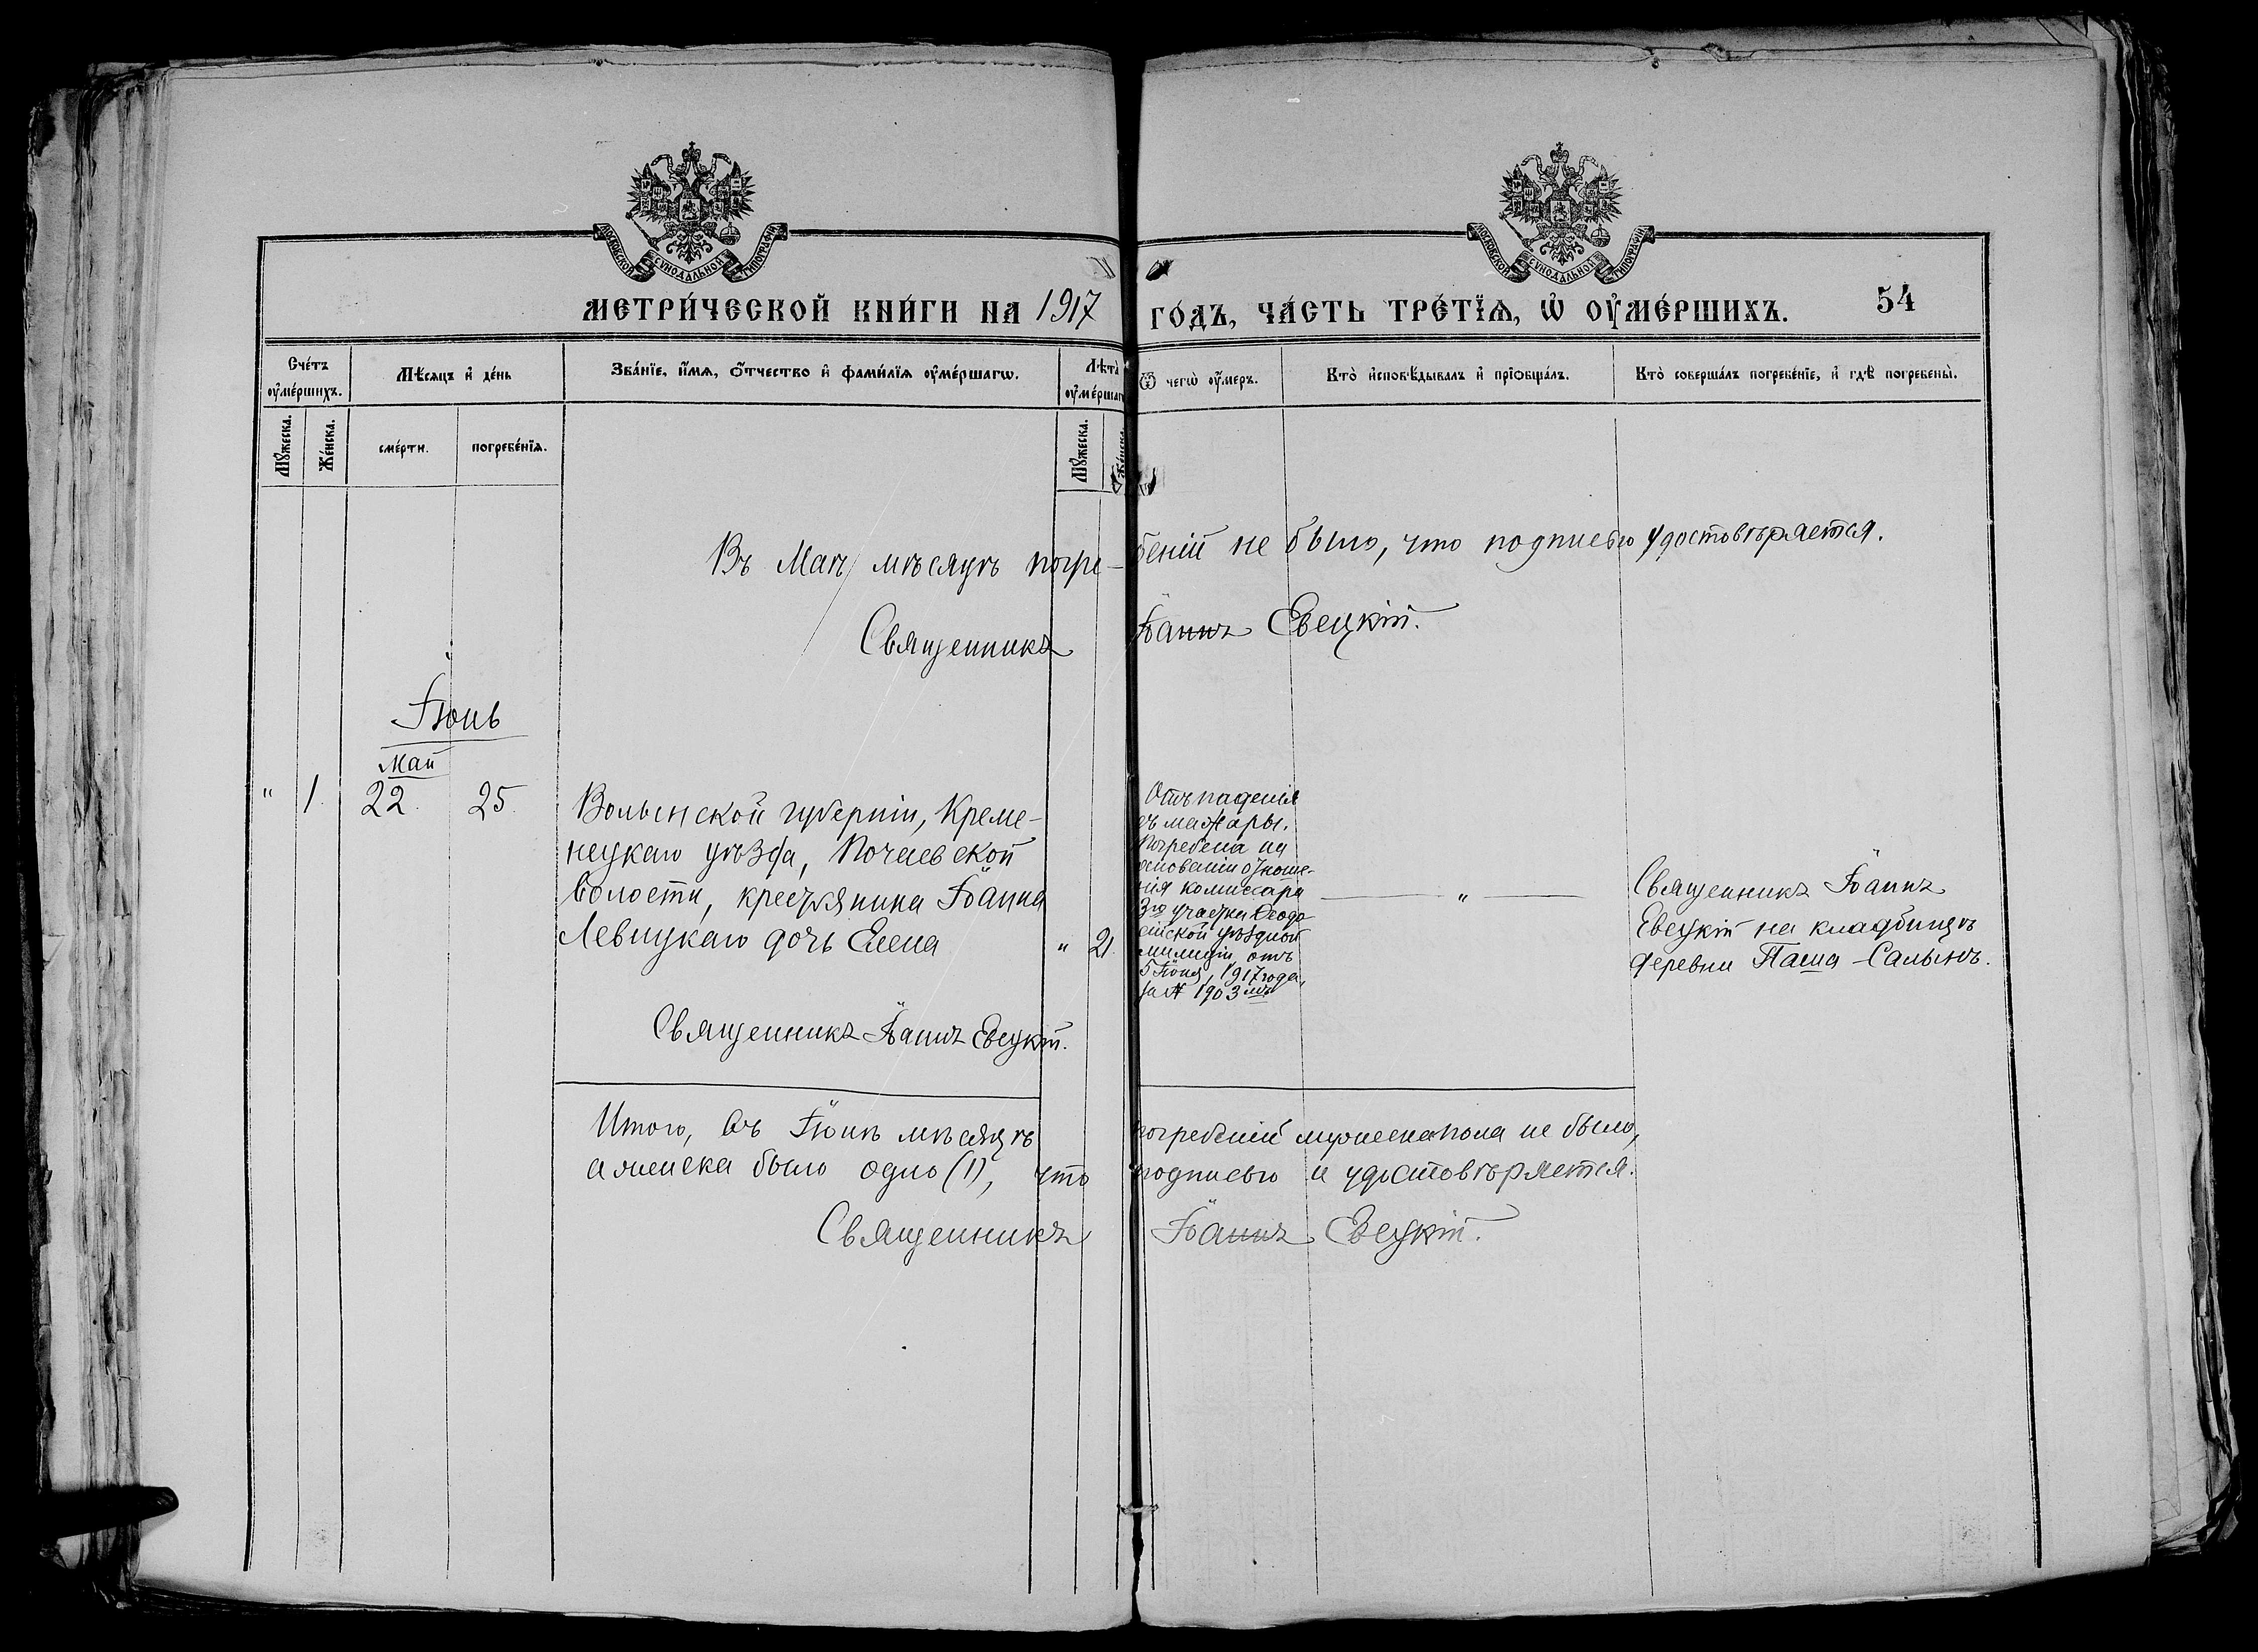 МОСКОВСКОЙ СѴНОДАЛЬНОЙ ТИПОГРАФІИ
МОСКОВСКОЙ СѴНОДАЛЬНОЙ ТИПОГРАФІИ
МЕТРИ́ЧЕСКОЙ КНИ́ГИ НА 1917 ГО́ДЪ, ЧА́СТЬ ТРЕ́ТЇѦ, Ѡ҆ ОУ҆МЕ́РШИХЪ. 54
Сче́тъ оу҆ме́ршихъ.
Мꙋ́жеска.
Же́нска.
Мѣ́сяцъ и҆ де́нь
сме́рти.
погребе́нїѧ.
Зва́нїе, и҆́мѧ, ѻ҆́тчество и҆ фами́лїѧ оу҆ме́ршагѡ.
Лѣта̀ оу҆ме́ршагѡ
Мꙋ́жеска.
Же́нска.
Ѿ чегѡ̀ оу҆́меръ.
Кто̀ и҆сповѣ́дывалъ и҆ прїѻбща́лъ.
Кто̀ соверша́лъ погребе́нїе, и҆ гдѣ̀ погребены̀.
Въ Маѣ мѣсяцѣ погре-беній не было, что подписью удостовѣряется.
Священникъ Іоаннъ Евецкій.
Іюнь
Май
" 1. 22. 25.
Волынской губерніи, Креме-
нецкаго уѣзда, Почаевской
волости, крестьянина Іоанна
Левицкаго дочь Елена
" 21.
Отъ паденія
съ мажары.
Погребена на
основаніи отноше-
нія комиссара
3го участка Ѳеодо
сійской уѣздной
милиціи, отъ
5 Іюня, 1917 года,
за № 1903 мъ
"
Священникъ Іоаннъ
Евецкій на кладбищѣ
деревни Паша-Салынъ.
Священникъ Іоаннъ Евецкій.
Итого, въ Іюнѣ мѣсяцѣ погребеній мужеска пола не было,
а женска было одно (1), что подписью и удостовѣряется.
Священникъ Іоаннъ Евецкій.